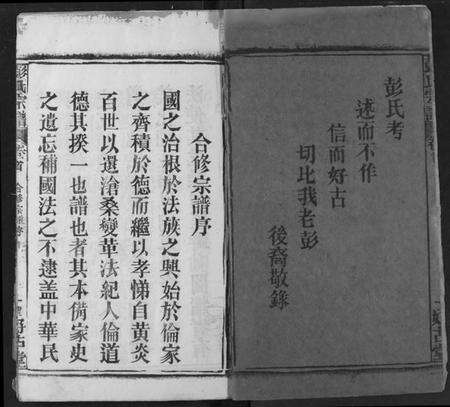 彭氏考
述而不作
信而好古
切比我老彭
後裔敬錄
合修宗譜序
國之治根於法族之興始於倫家
之齊積於德而繼以孝悌自黃炎
百世以還滄桑變革法紀人倫道
德其揆一也譜也者其本備家史
之遺忘補國法之不逮盖中華民
彭氏宗譜
卷首
合修宗譜序
一
好古堂